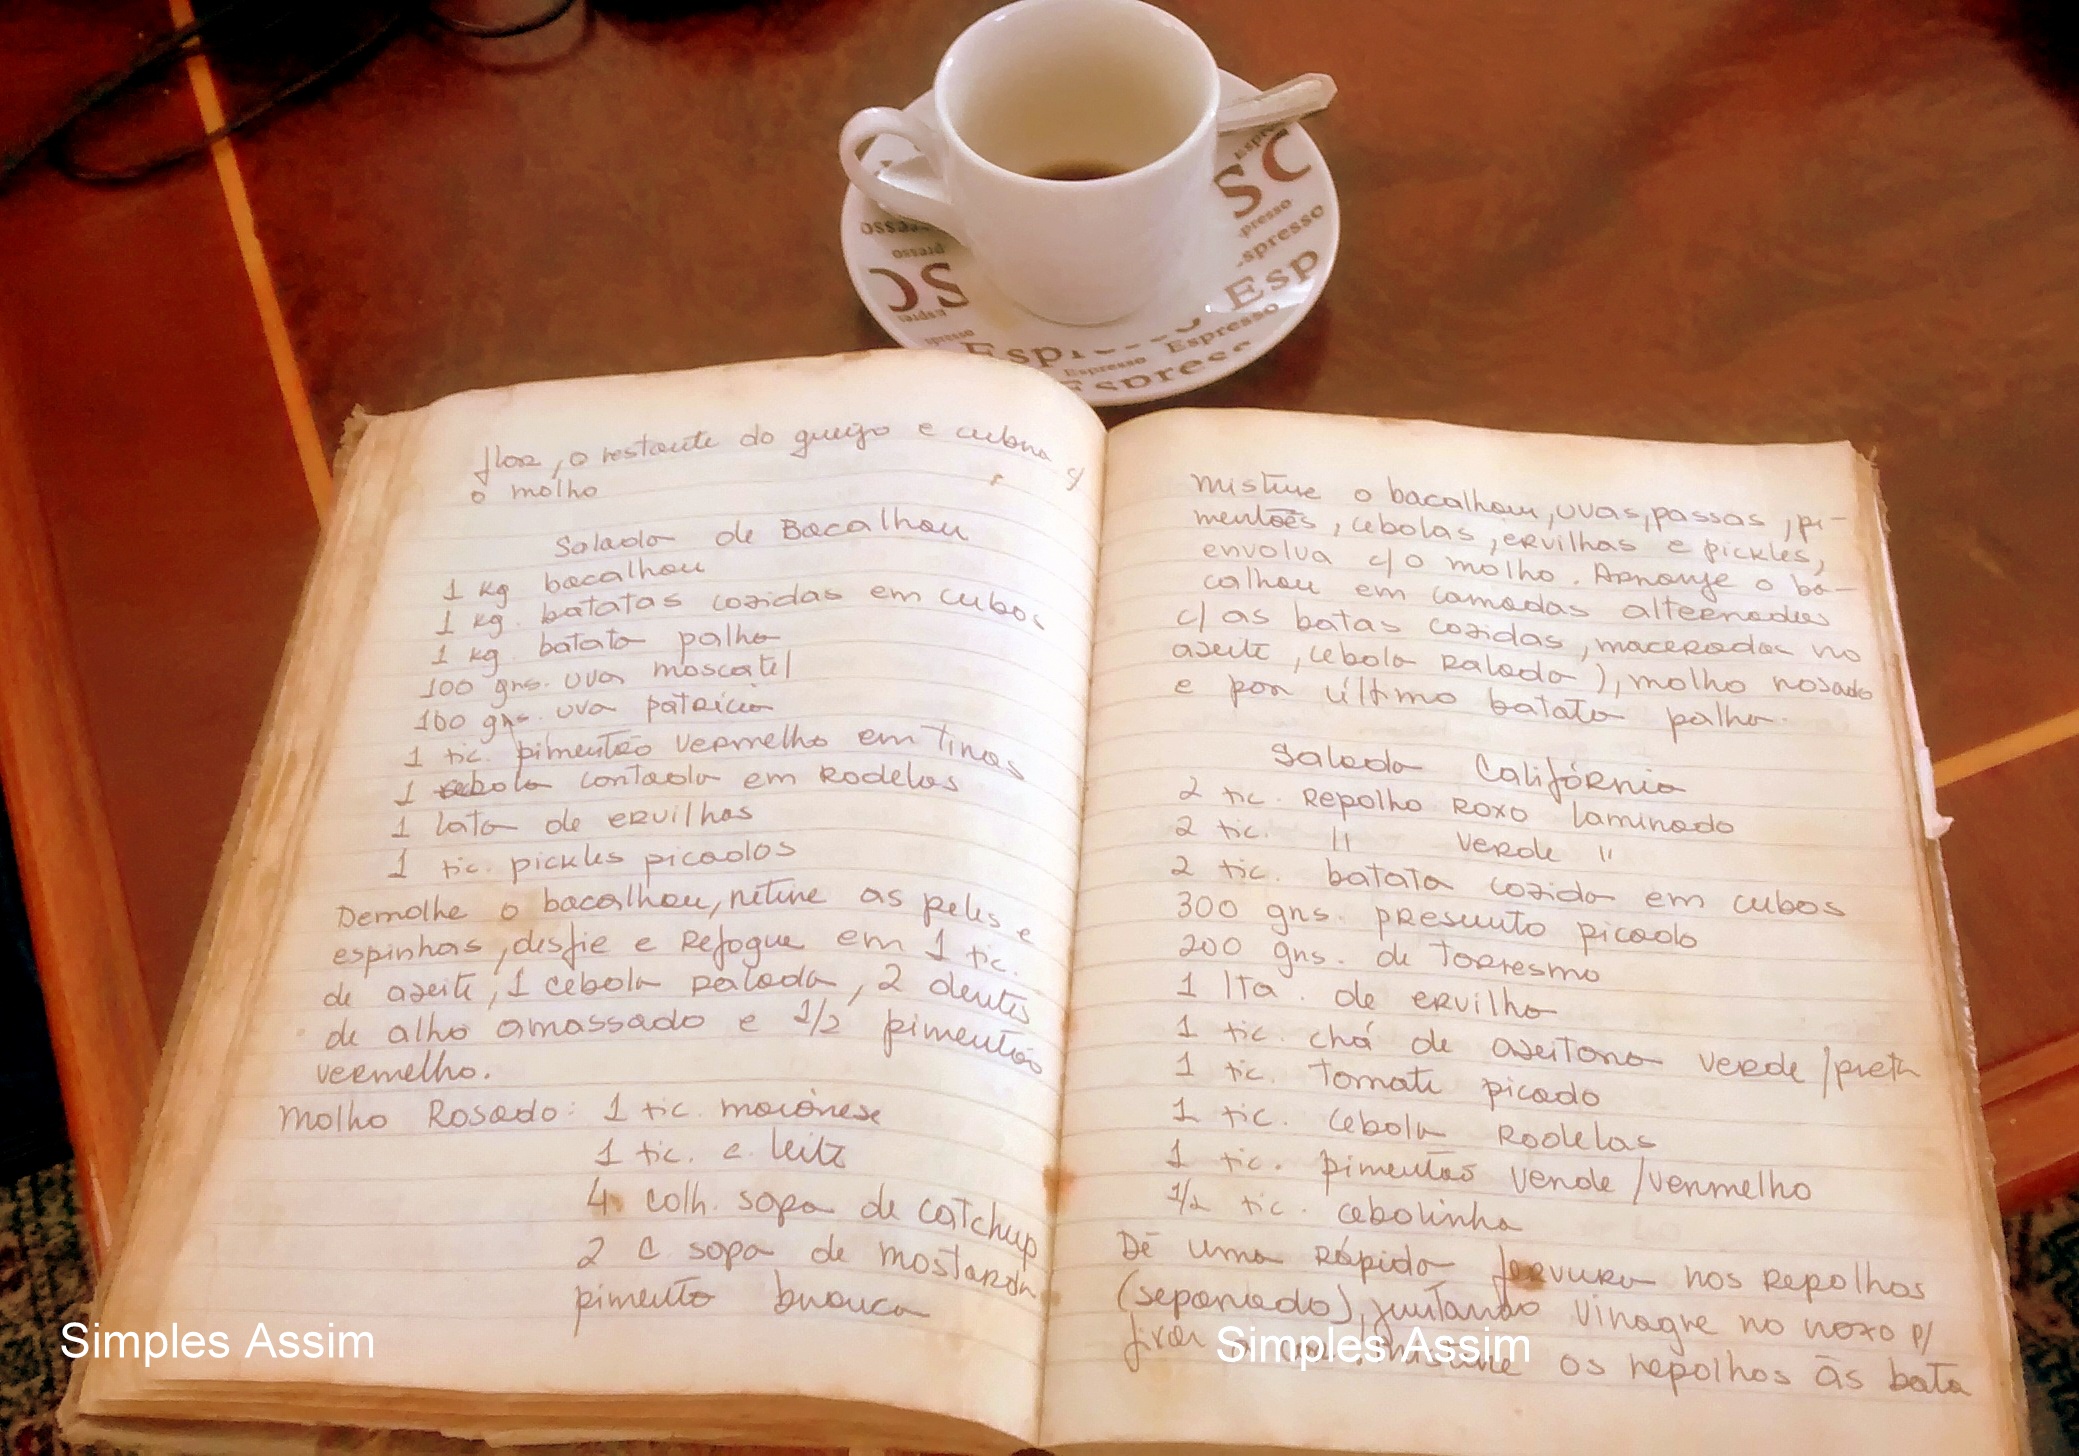 Espresso
SC
presso
Espresso
Esp
Espresso
Espresso
flor, o restante do queijo e cubra c/
o molho
Salada de Bacalhau
1 kg bacalhau
1 kg. batatas cozidas em cubos
1 kg batata palha
100 grs. uva moscatel
100 grs. uva patricia
1 xic. pimentão vermelho em tiras
1 cebola contada em rodelas
1 lata de ervilhas
1 xic. pickles picados
Demolhe o bacalhau, retire as peles e
espinhas, desfie e refogue em 1 xic.
de azeite, 1 cebola ralada, 2 dentes
de alho amassado e 1/2 pimentão
vermelho.
Molho Rosado: 1 xic. maionese
1 xic. c. leite
4 colh. sopa de catchup
2 c sopa de mostarda
pimenta branca
Misture o bacalhau, uvas, passas, pi-
mentões, cebolas, ervilhas e pickles,
envolva c/o molho. Arranje o ba-
calhau em camadas alternadas
c/ as batas cozidas, maceradas no
azeite, cebola ralada), molho rosado
e por último batata palha.
Salada Califórnia
2 xic. repolho roxo laminado
2 xic. " verde "
2 xic. batata cozida em cubos
300 grs. presunto picado
200 grs. de torresmo
1 lta. de ervilha
1 xic. chá de azeitona verde/preta
1 xic. tomate picado
1 xic. cebola rodelas
1 xic. pimentão verde/vermelho
1/2 xic. cebolinha
Dê uma rápida fervura nos repolhos
(separado), juntando vinagre no roxo p/
fixar a cor. Misture os repolhos às bata
Simples Assim
Simples Assim